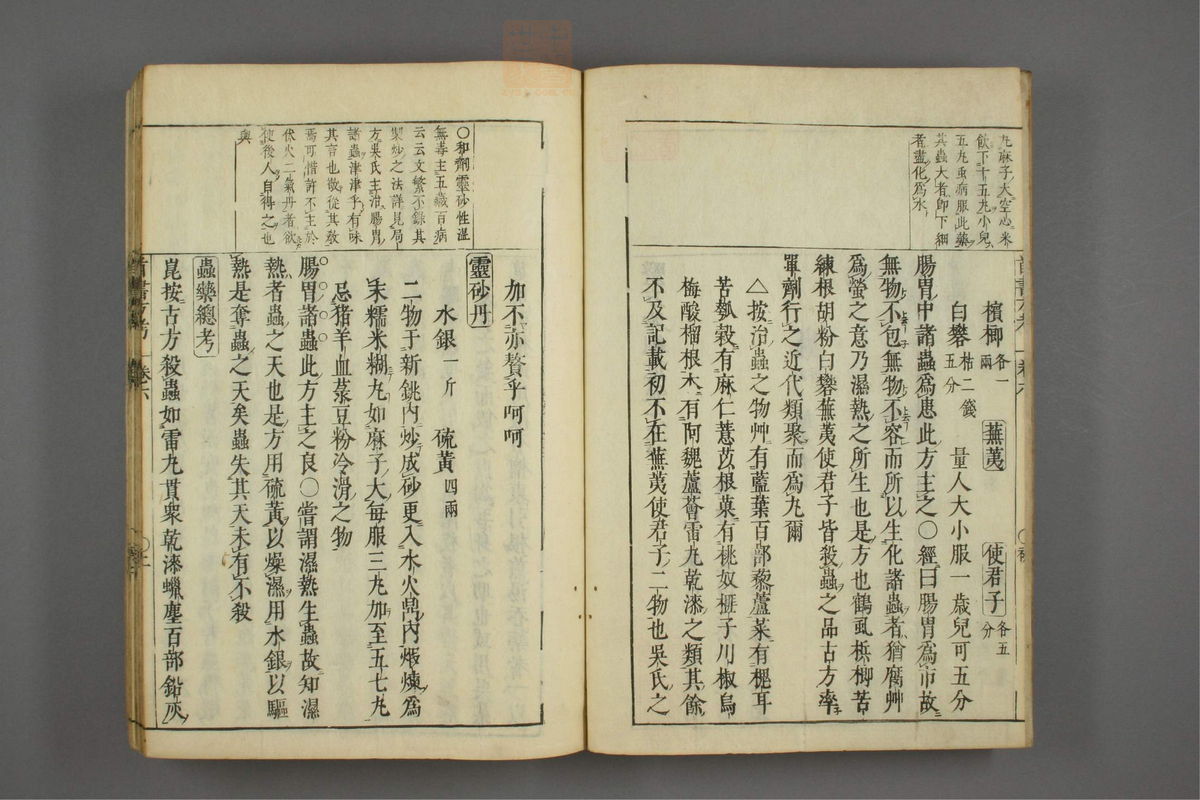 九麻子大空心米
飲下十五丸小兒
五丸重病服此藥
其蟲大者即下細
者盡化為水
檳榔 各一兩 蕪荑 使君子 各五分
白礬 枯二錢五分 量人大小服一歲兒可五分
腸胃中諸蟲為患此方主之〇經曰腸胃為市故
無物不包無物不容而所以生化諸蟲者猶腐艸
為螢之意乃濕熱之所生也是方也鶴虱檳榔苦
練根胡粉白礬蕪荑使君子皆殺蟲之品古方率
單劑行之近代類聚而為丸爾
△按治蟲之物艸有藍葉百部藜蘆菜有榧耳
苦瓠穀有麻仁薏苡根菓有桃奴榧子川椒烏
梅酸榴根木有阿魏蘆薈雷丸乾漆之類其餘
不及記載初不在蕪荑使君子二物也吳氏之
〇和劑靈砂性溫
無毒主五藏百病
云云文繁不錄其
製炒之法詳見局
方吳氏主治腸胃
諸蟲津津乎有味
其言也敬從其教
焉可惜許不主於
伏火二氣丹者欲
使後人自得之也
與
加不亦贅乎呵呵
靈砂丹
水銀 一斤 硫黃 四兩
二物于新銚內炒成砂更入水火鼎內煅煉為
末糯米糊丸如麻子大每服三丸加至五七丸
忌猪羊血菉豆粉冷滑之物
腸胃諸蟲此方主之良〇嘗謂濕熱生蟲故知濕
熱者蟲之天也是方用硫黃以燥濕用水銀以驅
熱是奪蟲之天矣蟲失其天未有不殺
蟲藥總考
崑按古方殺蟲如雷丸貫衆乾漆蠟塵百部鉛灰